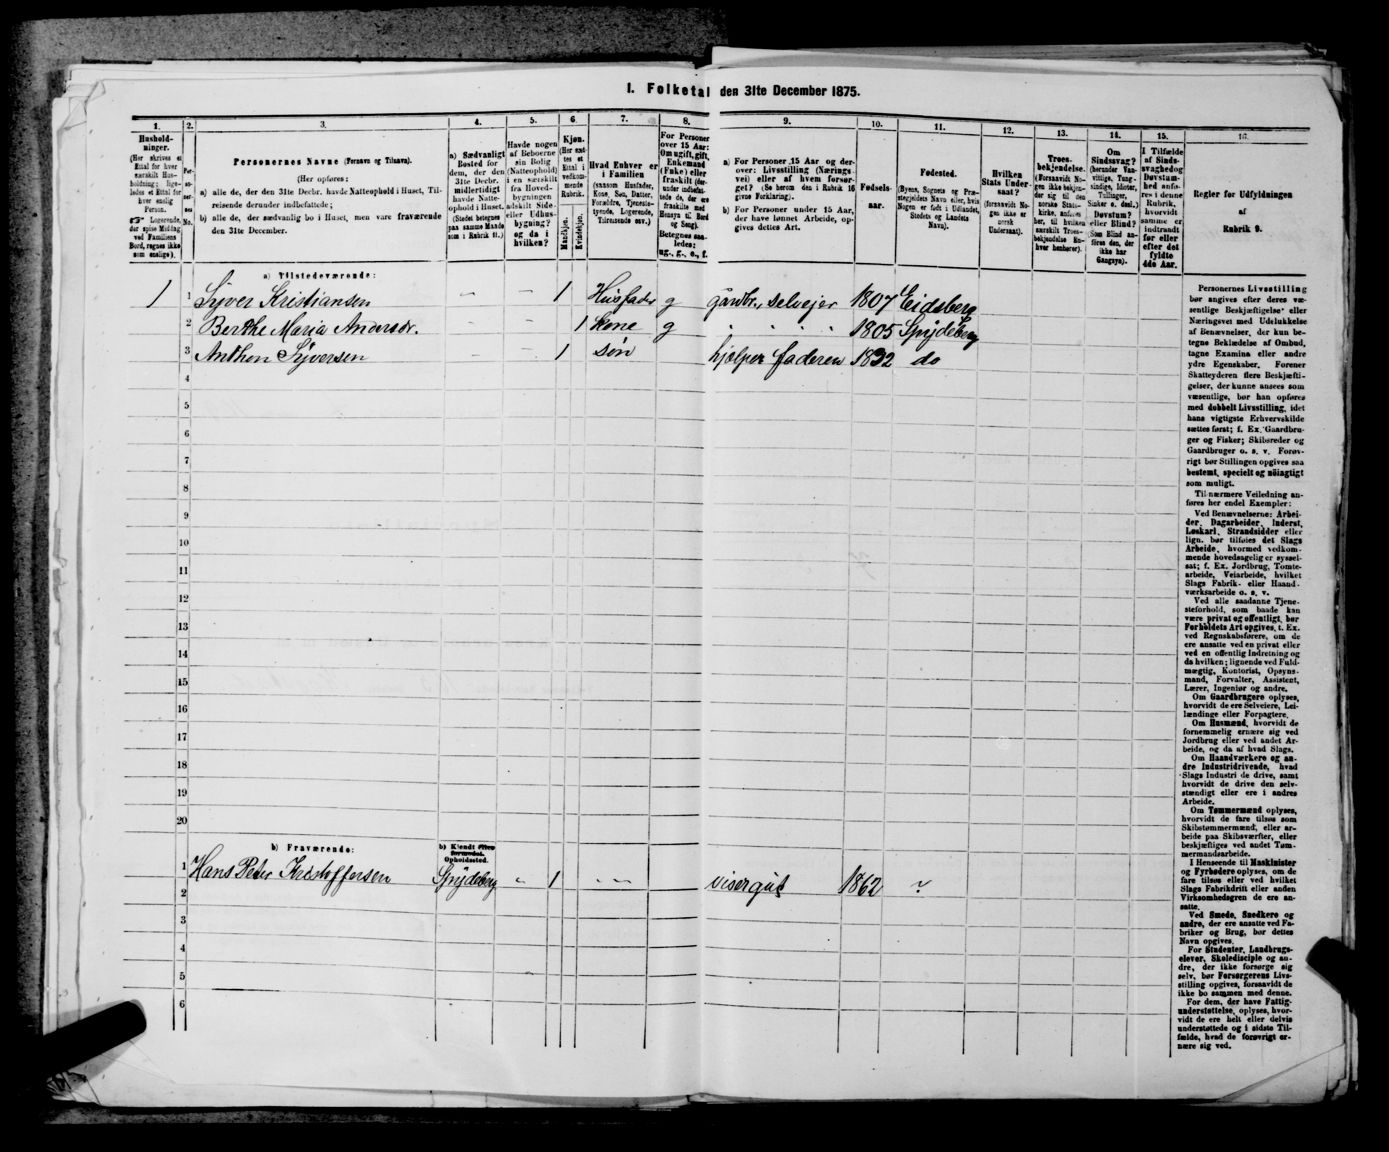 I. Folketal den 31te December 1875.
1. 2. 3. 4. 5. 6. 7. 8. 9. 10. 11. 12. 13. 14. 15. 16.
Hushold-
ninger.
(Her skrives et
Ettal for hver
særskilt Hus-
holdning; lige-
ledes et Ettal for
hver enslig
Person.
☞ Logerende,
der spise Middag
ved Familiens
Bord, regnes ikke
som enslige).
Personernes Navne (Fornavn og Tilnavn).
(Her opføres:
a) alle de, der den 31te Decbr. havde Natteophold i Huset, Til-
reisende derunder indbefattede;
b) alle de, der sædvanlig bo i Huset, men vare fraværende
den 31te December.
a) Sædvanligt
Bosted for
dem, der den
31te Decbr.
midlertidigt
havde Natte-
ophold i Huset.
(Stedet betegnes
paa samme Maade
som i Rubrik 11.)
Havde nogen
af Beboerne
sin Bolig
(Natteophold)
i en særskilt
fra Hoved-
bygningen
adskilt Side-
eller Udhus-
bygning?
og da i
hvilken?
Kjøn.
(Her sæt-
tes et
Ettal i
vedkom-
mende
Rubrik.
Mandkjøn.
Kvindekjøn.
Hvad Enhver er
i Familien
(saasom Husfader,
Kone, Søn, Datter,
Forældre, Tjeneste-
tyende, Logerende,
Tilreisende osv.)
For Personer
over 15 Aar:
Om ugift, gift,
Enkemand
(Enke) eller
fraskilt (der-
under indbefat-
tede de, der ere
fraskilte med
Hensyn til Bord
og Seng).
Betegnes saa-
ledes:
ug., g., e., f.
a) For Personer 15 Aar og der-
over: Livsstilling (Nærings-
vei) eller af hvem forsør-
get? (Se herom den i Rubrik 16
givne Forklaring).
b) For Personer under 15 Aar,
der have lønnet Arbeide, op-
gives dettes Art.
Fødsels-
aar.
Fødested.
(Byens, Sognets og Præ-
stegjeldets Navn eller, hvis
Nogen er født i Udlandet,
Stedets og Landets
Navn).
Hvilken
Stats Under-
saat?
(forsaavidt No-
gen ikke er
norsk
Undersaat).
Troes-
bekjendelse.
(Forsaavidt No-
gen ikke bekjen-
der sig til den
norske Stats-
kirke, anføres
her, til hvilken
særskilt Troes-
bekjendelse En-
hver henhører).
Om
Sindssvag?
(herunder Van-
vittige, Tung-
sindige, Idioter,
Tullinger,
Sinker o. desl.)
Døvstum?
eller Blind?
(Som Blind an-
føres den, der
ikke har
Gangsyn).
I Tilfælde
af Sinds-
svaghed og
Døvstum-
hed anfø-
res i denne
Rubrik,
hvorvidt
samme er
indtraadt
før eller
efter det
fyldte
4de Aar.
Regler for Udfyldningen
af
Rubrik 9.
a) Tilstedeværende:
1 1 Syver Kristiansen — — 1 Husfader g gaardbr., selveier 1807 Eidsberg
2 Berthe Maria Andersdr. 1 kone g 1805 Spydeberg
3 Anthon Syversen — — 1 søn hjælper faderen 1832 do
4
5
6
7
8
9
10
11
12
13
14
15
16
17
18
19
20
b) Fraværende:
b) Kjendt eller
formodet
Opholdssted.
1 Hans Peter Kristoffersen Spydeberg „ 1 visergut 1862 ?
2
3
4
5
6
Personernes Livsstilling
bør angives efter deres væ-
sentlige Beskjæftigelse eller
Næringsvei med Udelukkelse
af Benævnelser, der kun be-
tegne Beklædelse af Ombud,
tagne Examina eller andre
ydre Egenskaber. Forener
Skatteyderen flere Beskjæfti-
gelser, der kunne ansees som
væsentlige, bør han opføres
med dobbelt Livsstilling, idet
hans vigtigste Erhvervskilde
sættes først; f. Ex. Gaardbru-
ger og Fisker; Skibsreder og
Gaardbruger o. s. v. Forøv-
rigt bør Stillingen opgives saa
bestemt, specielt og nøiagtigt
som muligt.
Til nærmere Veiledning an-
føres her endel Exempler:
Ved Benævnelserne: Arbei-
der, Dagarbeider, Inderst,
Løskarl, Strandsidder eller
lign. bør tilføies det Slags
Arbeide, hvormed vedkom-
mende hovedsagelig er syssel-
sat; f. Ex. Jordbrug, Tomte-
arbeide, Veiarbeide, hvilket
Slags Fabrik- eller Haand-
værksarbeide o. s. v.
Ved alle saadanne Tjene-
steforhold, som baade kan
være privat og offentligt, bør
Forholdets Art opgives, t. Ex.
ved Regnskabsførere, om de
ere ansatte ved en privat eller
ved en offentlig Indretning og
da hvilken; lignende ved Fuld-
mægtig, Kontorist, Opsyns-
mand, Forvalter, Assistent,
Lærer, Ingeniør og andre.
Om Gaardbrugere oplyses,
hvorvidt de ere Selveiere, Lei-
lændinge eller Forpagtere.
Om Husmænd, hvorvidt de
fornemmelig ernære sig ved
Jordbrug eller ved andet Ar-
beide, og da af hvad Slags.
Om Haandværkere og an-
dre Industridrivende, hvad
Slags Industri de drive, samt
hvorvidt de drive den selv-
stændigt eller ere i andres
Arbeide.
Om Tømmermænd oplyses,
hvorvidt de fare tilsøs som
Skibstømmermænd, eller ar-
beide paa Skibsværfter, eller
beskjæftiges ved andet Tøm-
mermandsarbeide.
I Henseende til Maskinister
og Fyrbødere oplyses, om de
fare tilsøs eller ved hvilket
Slags Fabrikdrift eller anden
Virksomhedsgren de ere an-
satte.
Ved Smede, Snedkere og
andre, der ere ansatte ved Fa-
briker og Brug, bør dettes
Navn opgives.
For Studenter, Landbrugs-
elever, Skoledisciple og an-
dre, der ikke forsørge sig
selv, bør Forsørgerens Livs-
stilling opgives, forsaavidt de
ikke bo sammen med denne.
For dem, der have Fattig-
understøttelse, oplyses, hvor-
vidt de ere helt eller delvis
understøttede og i sidste Til-
fælde, hvad de forøvrigt er-
nære sig ved.